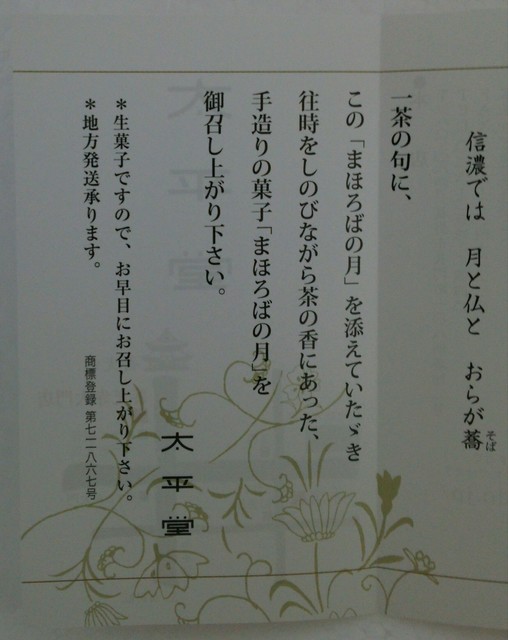 信濃では 月と仏と おらが蕎
そば
一茶の句に、
この「まほろばの月」を添えていたゞき
往時をしのびながら茶の香にあった、
手造りの菓子「まほろばの月」を
御召し上がり下さい。
太平堂
*生菓子ですので、お早目にお召し上がり下さい。
*地方発送承ります。
商標登録 第七一一八六七号